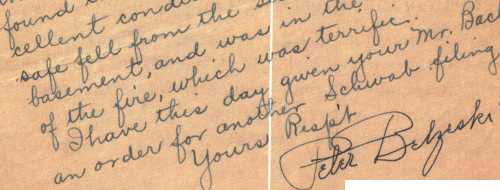 found
cellent condi
safe fell from the
basement, and was in the
of the fire, which was terrific.
I have this day given your Mr. Bac
an order for another Schwab filing
Yours Resp't
Peter Belzeski